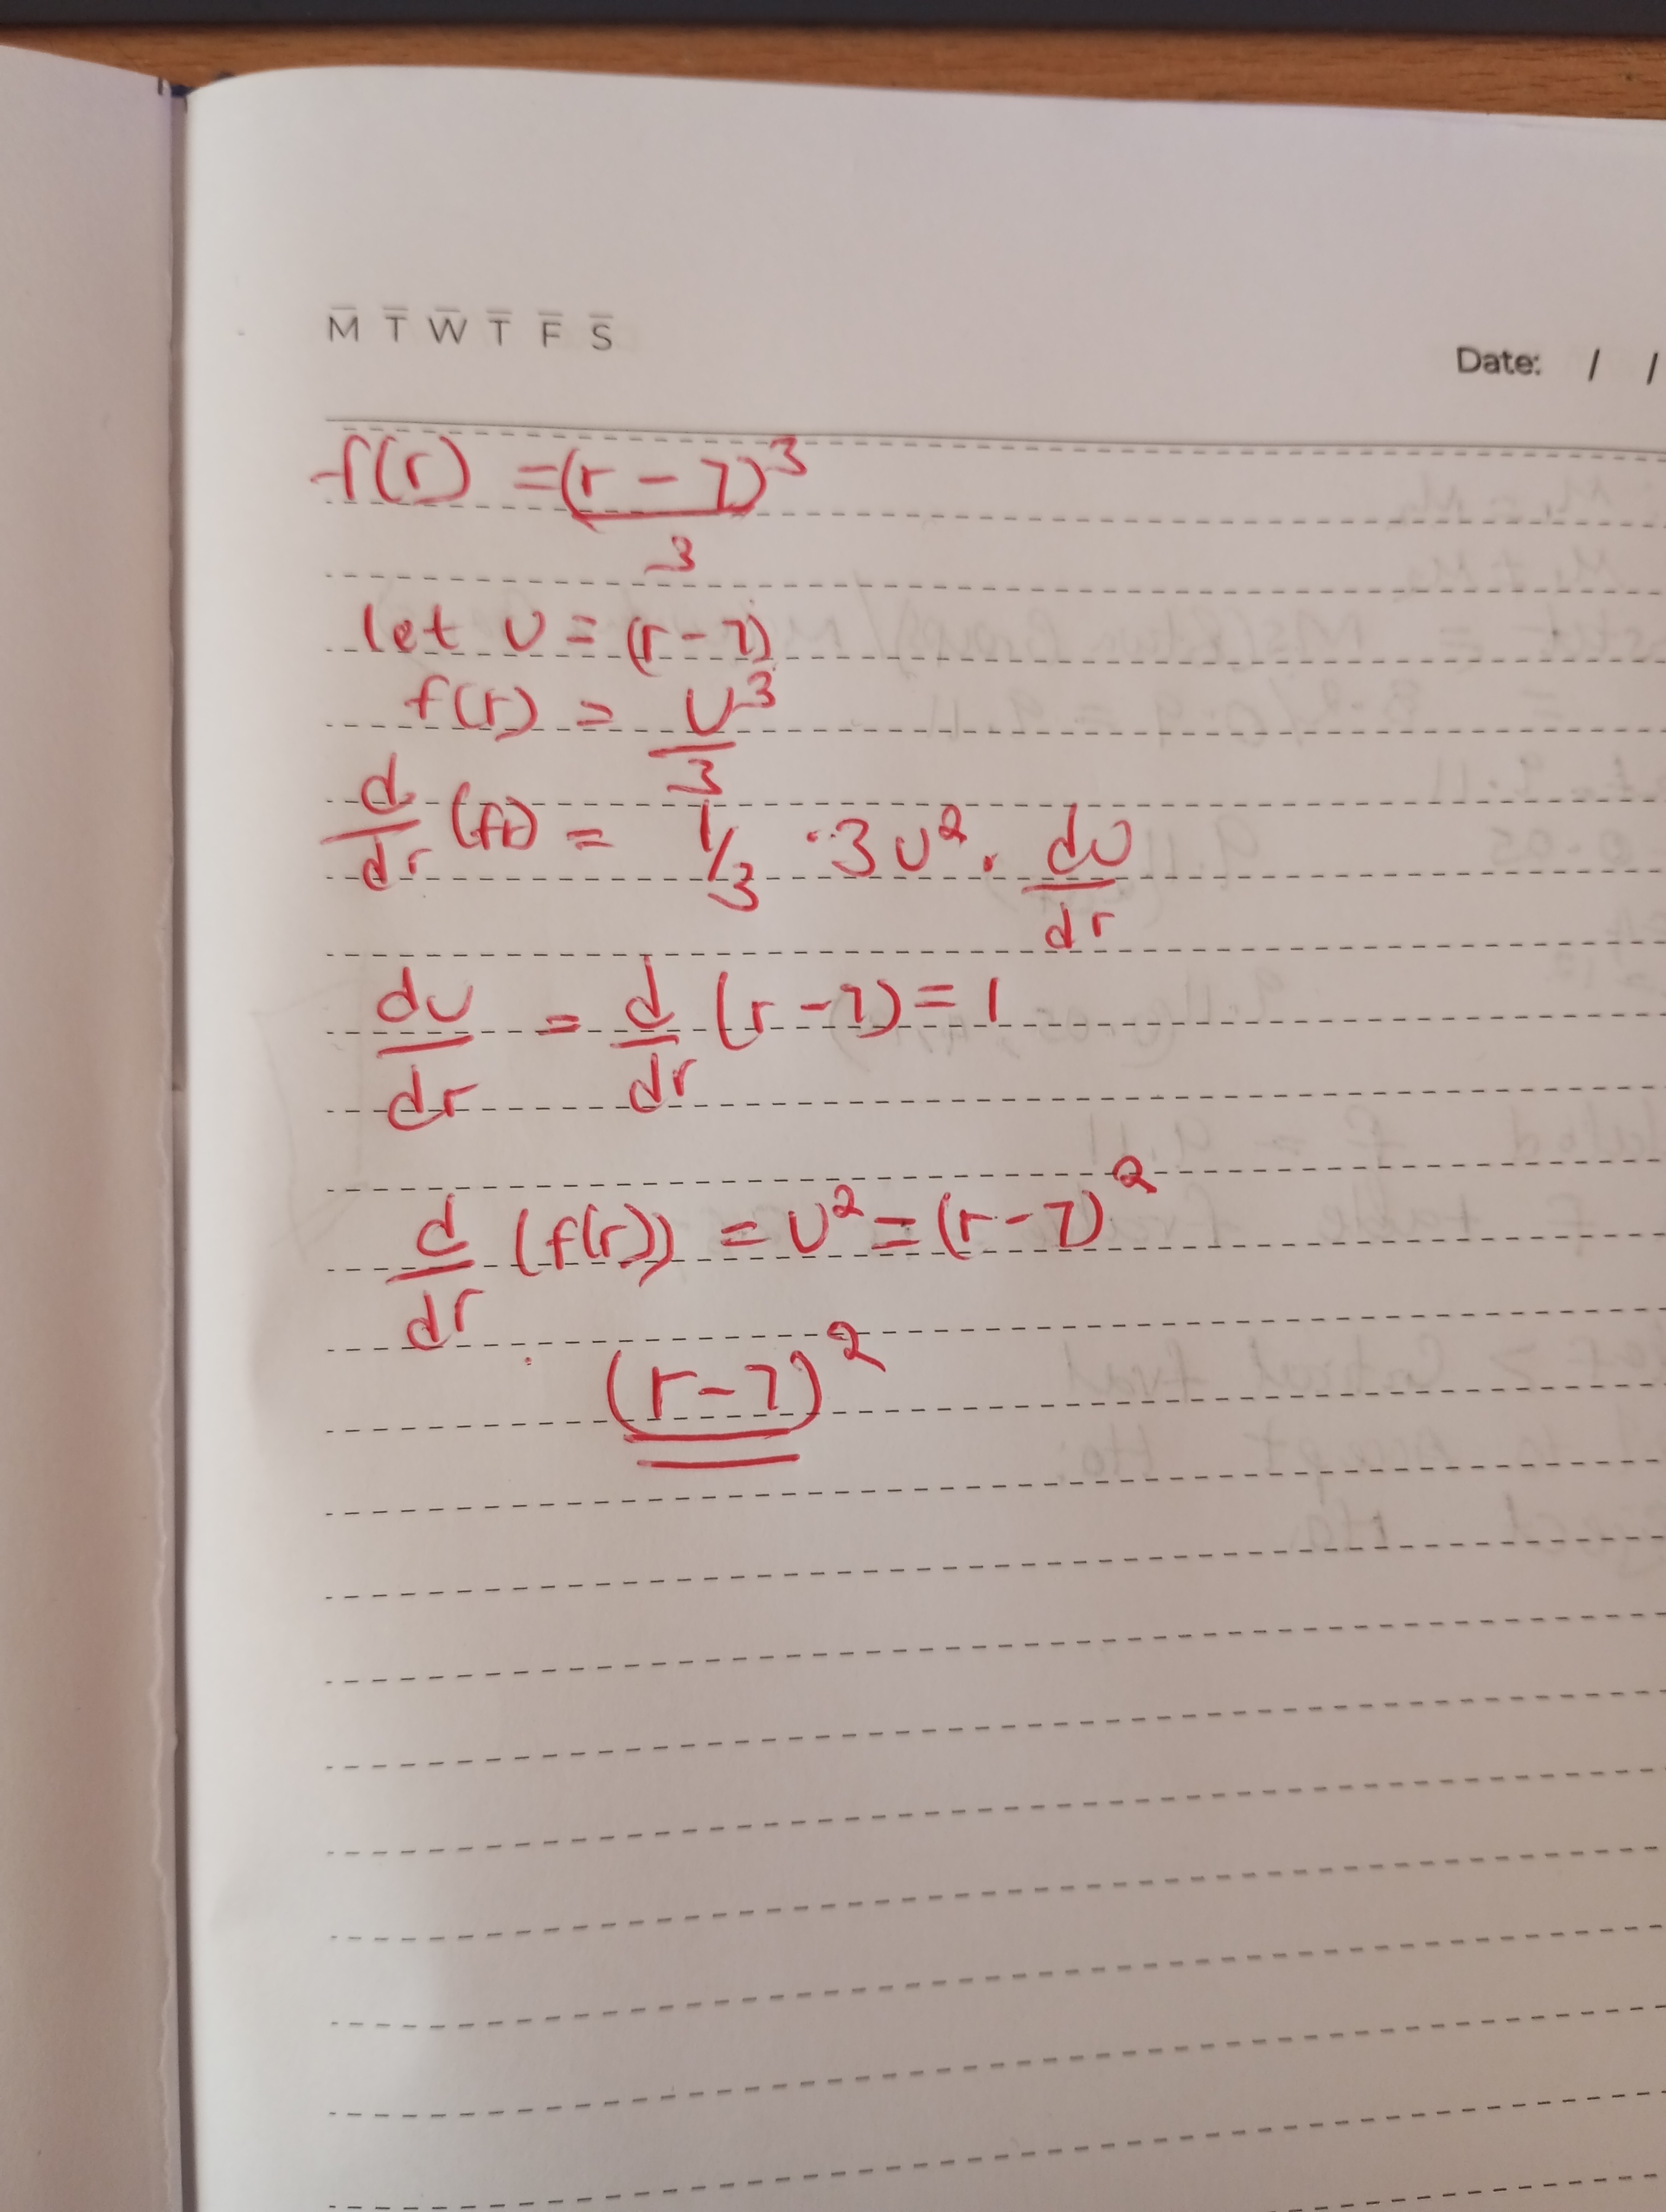 M T W T F S
Date: / /
f(r) = (r - 7)^3 / 3
let u = (r - 7)
f(r) = u^3 / 3
d/dr (fr) = 1/3 · 3u^2 · du/dr
du/dr = d/dr (r - 7) = 1
d/dr (f(r)) = u^2 = (r - 7)^2
(r - 7)^2